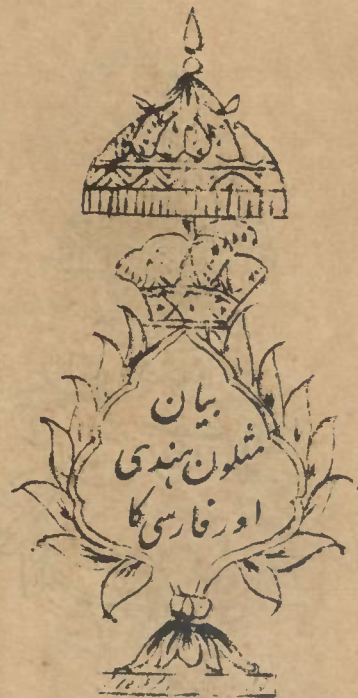 بیان
مثلون ہندی
اور فارسی کا